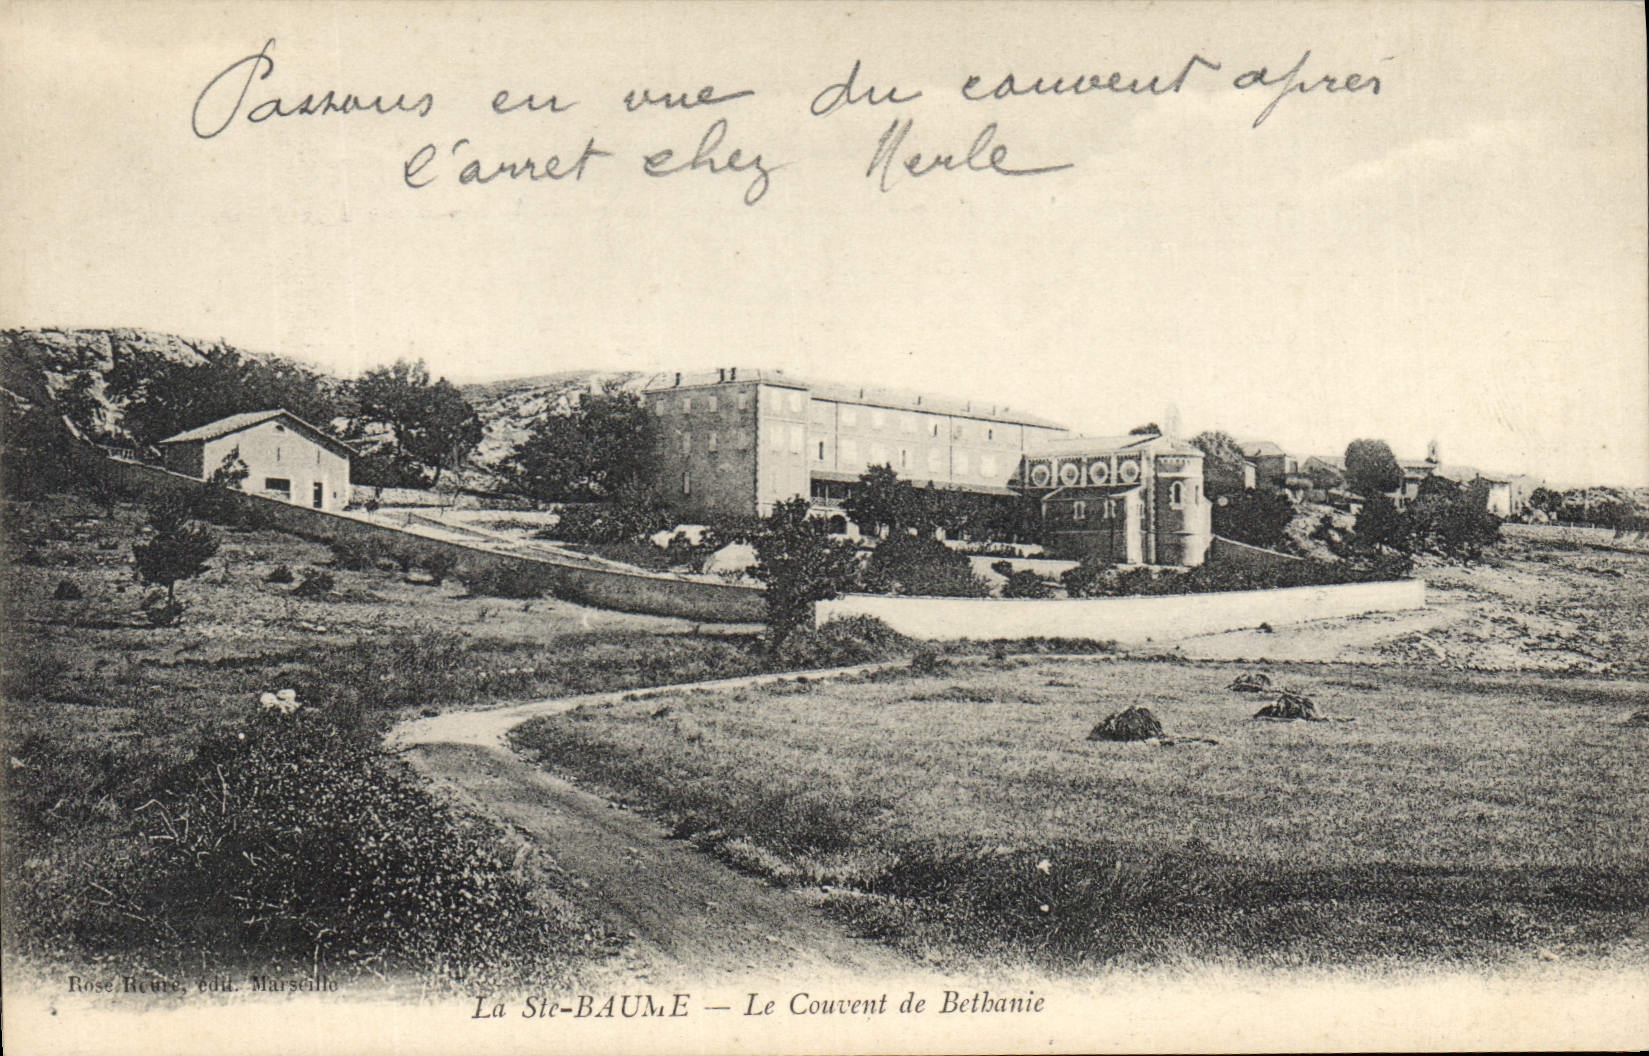 Passons en vue du couvent après
l'arret chez Merle
Rose Roure, édit. Marseille
La Ste-BAUME — Le Couvent de Bethanie